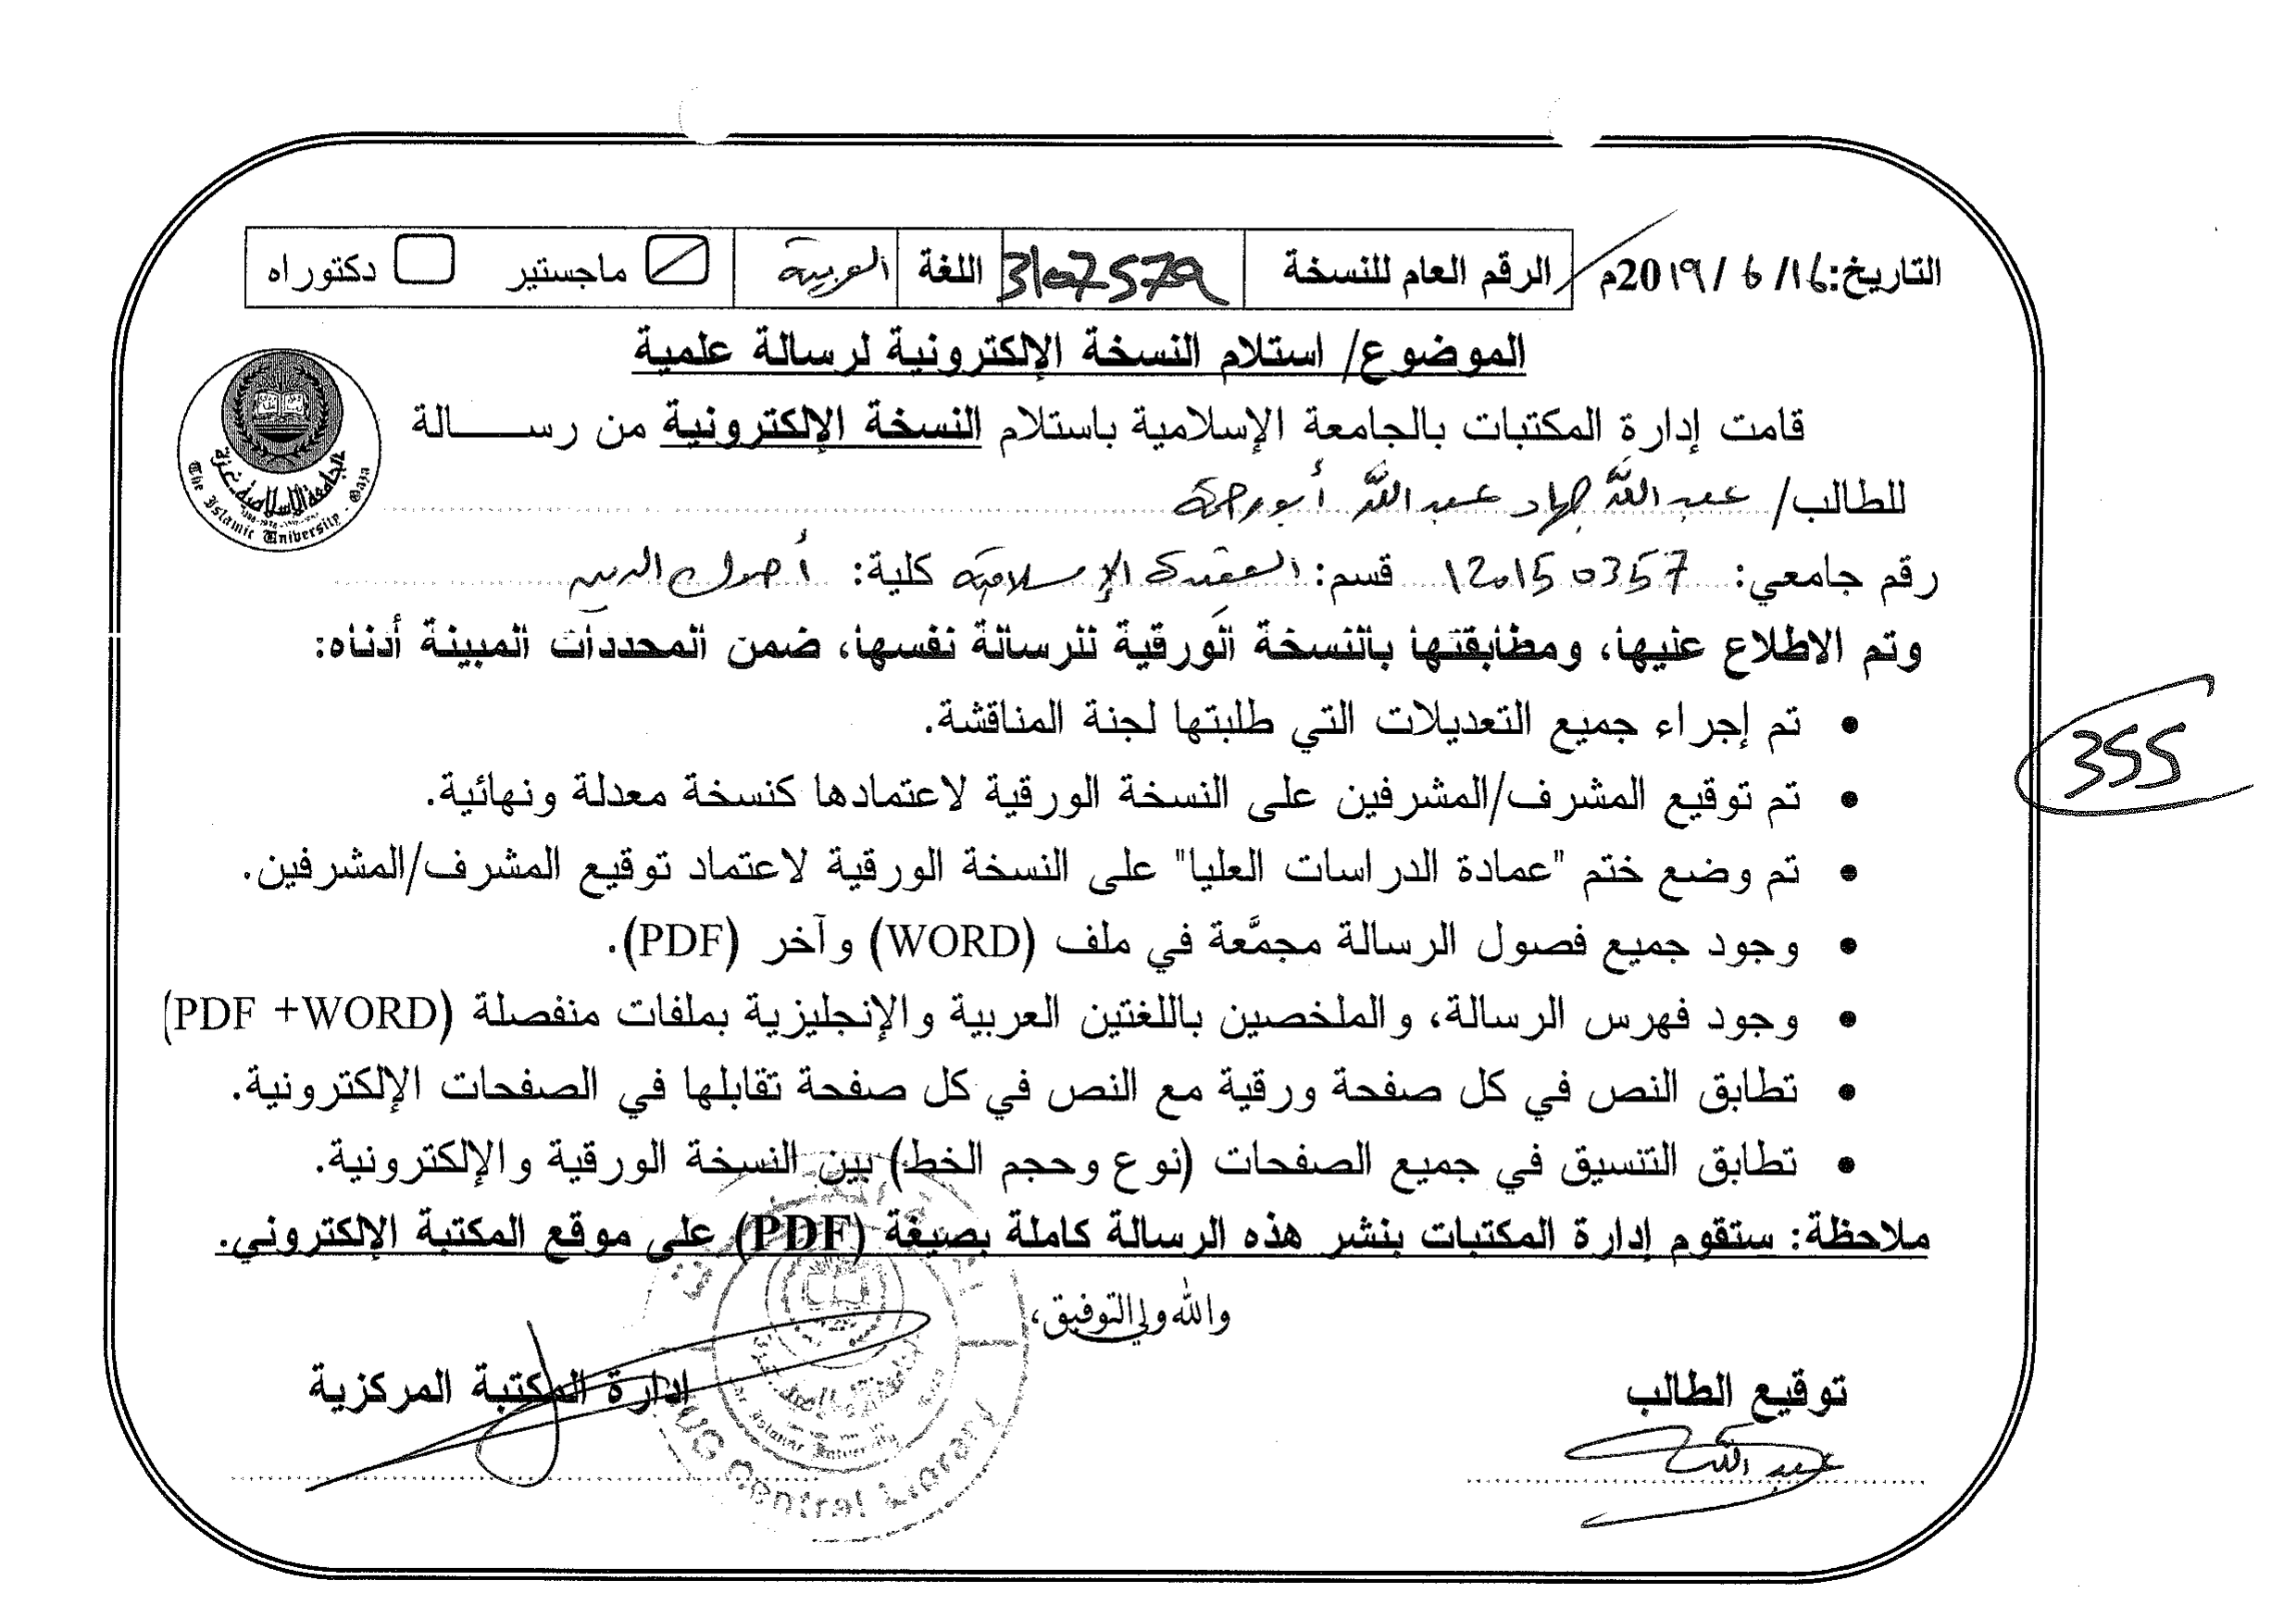 التاريخ: ١٦/ ٦ / 20١٩م الرقم العام للنسخة 3107579 اللغة العربية ماجستير دكتوراه
الموضوع/ استلام النسخة الإلكترونية لرسالة علمية
قامت إدارة المكتبات بالجامعة الإسلامية باستلام النسخة الإلكترونية من رســـــالة
للطالب/ عبد الله جهاد عبد الله أبو رحمة
رقم جامعي: 120150357 قسم: العقيدة الإسلامية كلية: أصول الدين
وتم الاطلاع عليها، ومطابقتها بالنسخة الورقية للرسالة نفسها، ضمن المحددات المبينة أدناه:
• تم إجراء جميع التعديلات التي طلبتها لجنة المناقشة.
355
• تم توقيع المشرف/المشرفين على النسخة الورقية لاعتمادها كنسخة معدلة ونهائية.
• تم وضع ختم "عمادة الدراسات العليا" على النسخة الورقية لاعتماد توقيع المشرف/المشرفين.
• وجود جميع فصول الرسالة مجمَّعة في ملف (WORD) وآخر (PDF).
• وجود فهرس الرسالة، والملخصين باللغتين العربية والإنجليزية بملفات منفصلة (PDF +WORD)
• تطابق النص في كل صفحة ورقية مع النص في كل صفحة تقابلها في الصفحات الإلكترونية.
• تطابق التنسيق في جميع الصفحات (نوع وحجم الخط) بين النسخة الورقية والإلكترونية.
ملاحظة: ستقوم إدارة المكتبات بنشر هذه الرسالة كاملة بصيغة (PDF) على موقع المكتبة الإلكتروني.
والله ولي التوفيق،
توقيع الطالب إدارة المكتبة المركزية
عبد الله
الجامعة الإسلامية - غزة
The Islamic University - Gaza
IUG Central Library